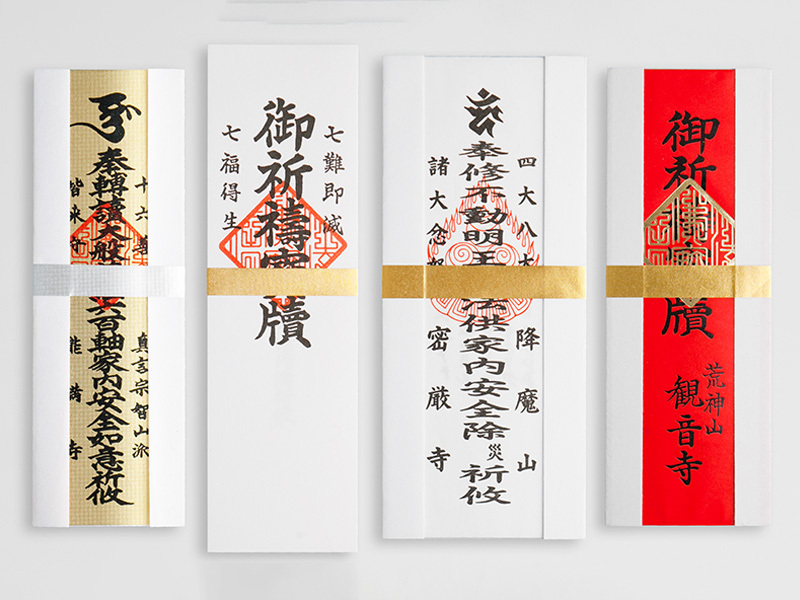 十六善 真言宗智山派
奉轉讀大般 六百軸家内安全如意祈攸
能満寺
七難即滅
御祈禱寶牘
七福得生
四大八大 降魔山
奉修不動明王 法供家内安全除災祈攸
諸大忿 密厳寺
御祈禱寶牘
荒神山
観音寺